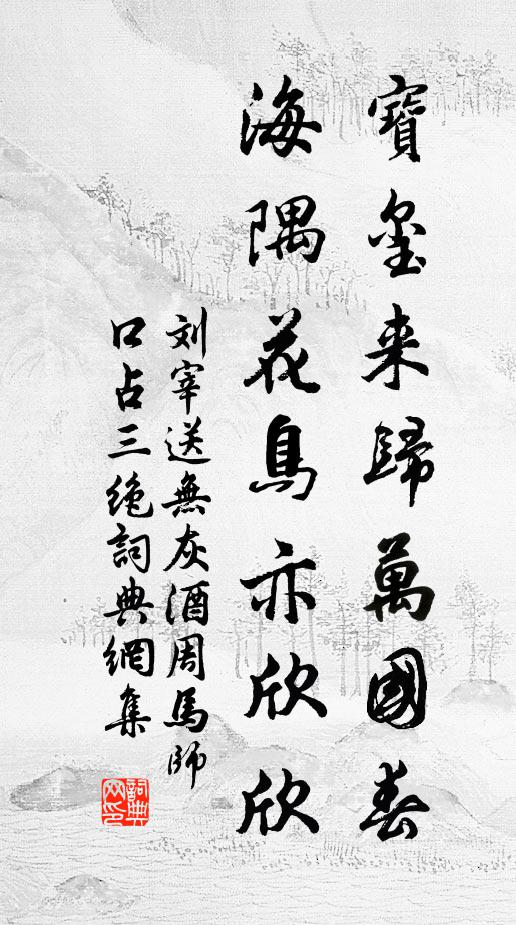 寶璽来歸萬國春
海隅花鳥亦欣欣
刘宰送無灰酒周馬師
口占三绝詞典網集
詞典网印